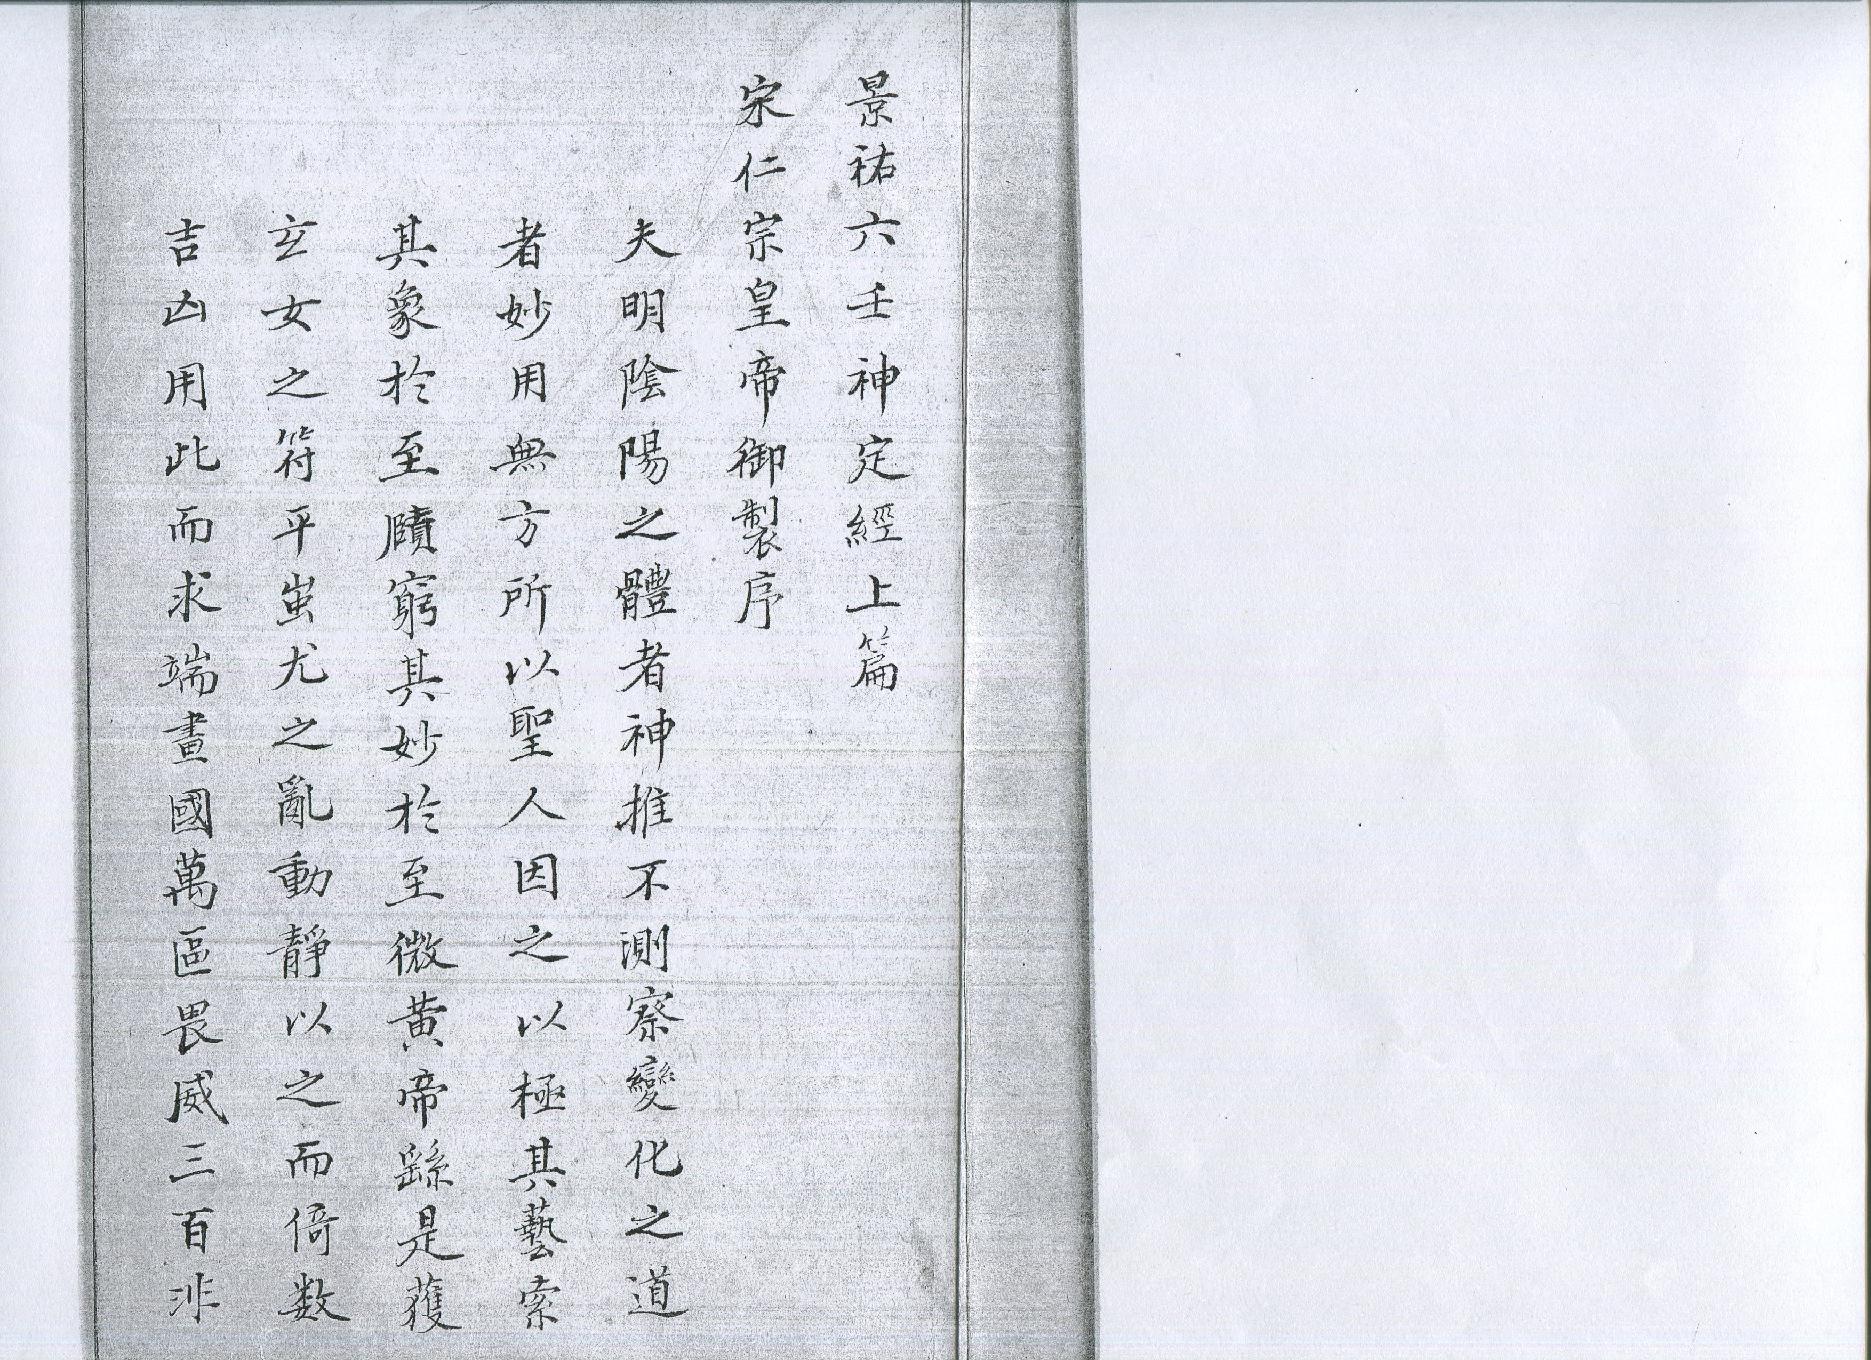 景祐六壬神定經上篇
宋仁宗皇帝御製序
夫明陰陽之體者神推不測察變化之道
者妙用無方所以聖人因之以極其藝索
其象於至賾窮其妙於至微黃帝繇是獲
玄女之符平蚩尤之亂動靜以之而倚数
吉凶用此而求端畫國萬區畏威三百非